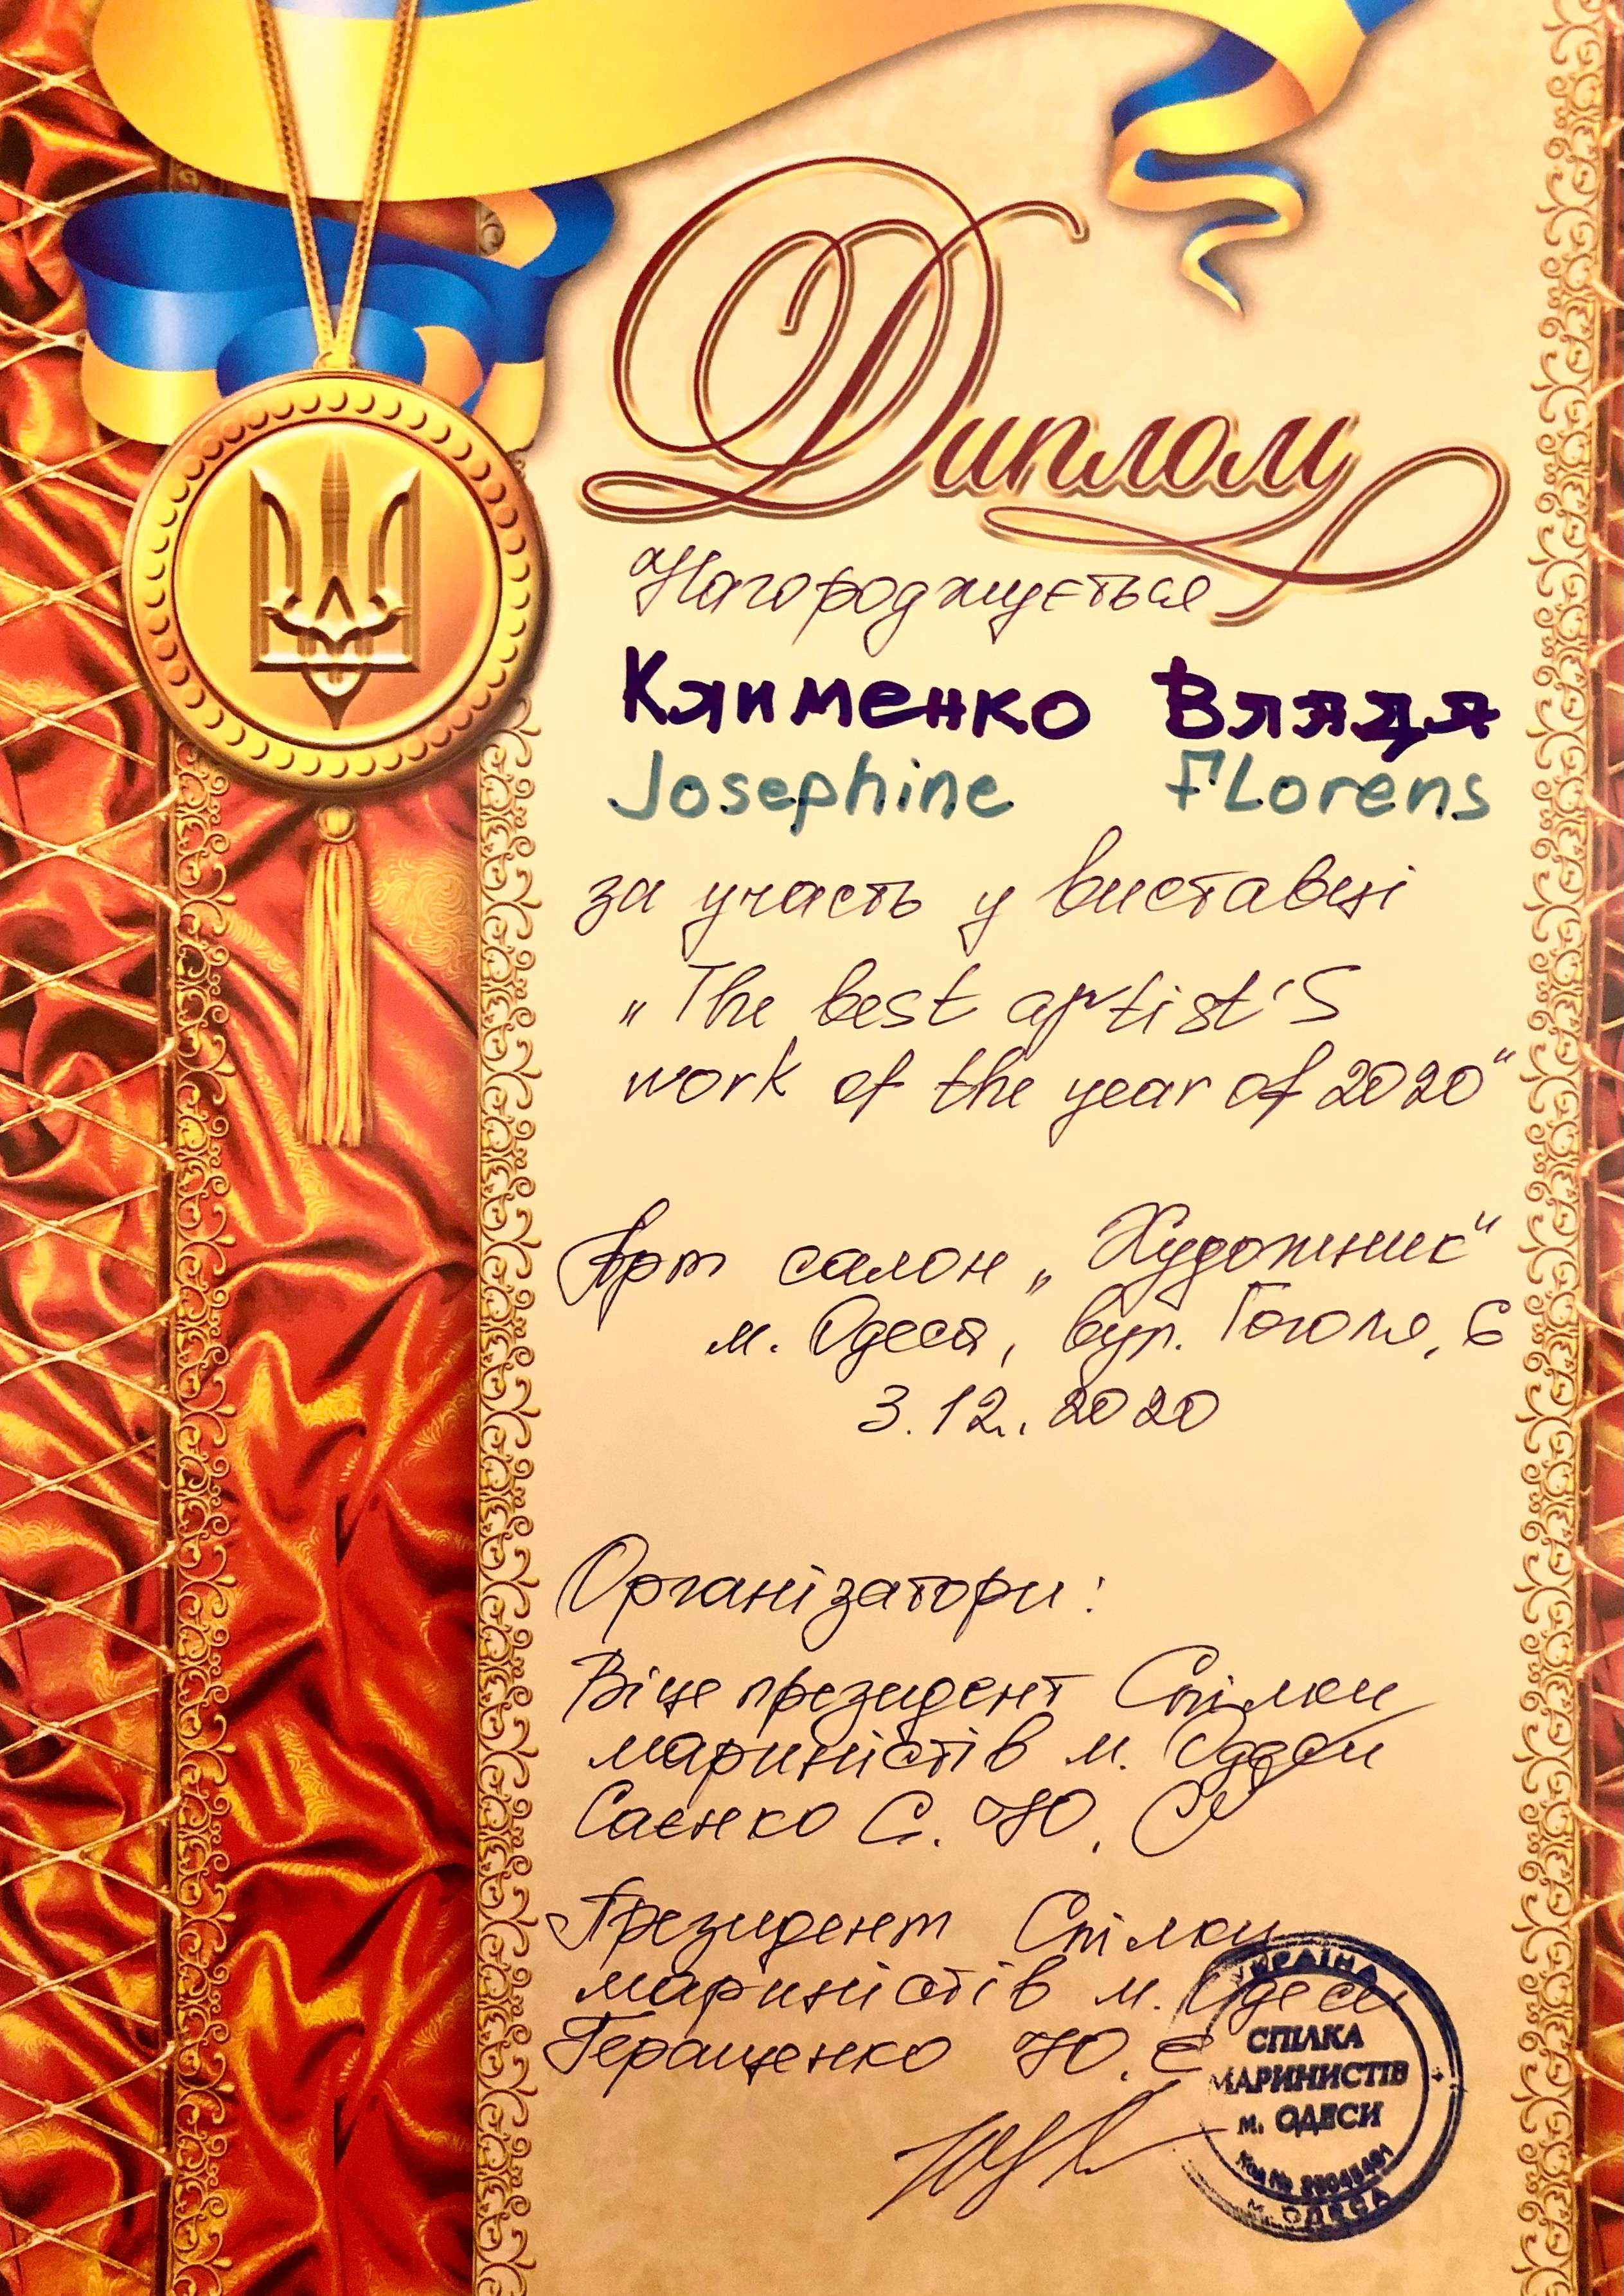 Диплом
Нагороджується
Клименко Влада
Josephine Florens
за участь у виставці
„The best artist'S
work of the year of 2020“
Арт салон „Художник“
м. Одеса, вул. Гоголя, 6
3.12.2020
Організатори:
Віце президент Спілки
мариністів м. Одеси
Саєнко С. Ю.
Президент Спілки
мариністів м. Одеси
Геращенко Ю. Є
УКРАЇНА
СПІЛКА
МАРИНИСТІВ
м. ОДЕСИ
Код №
м. ОДЕСА